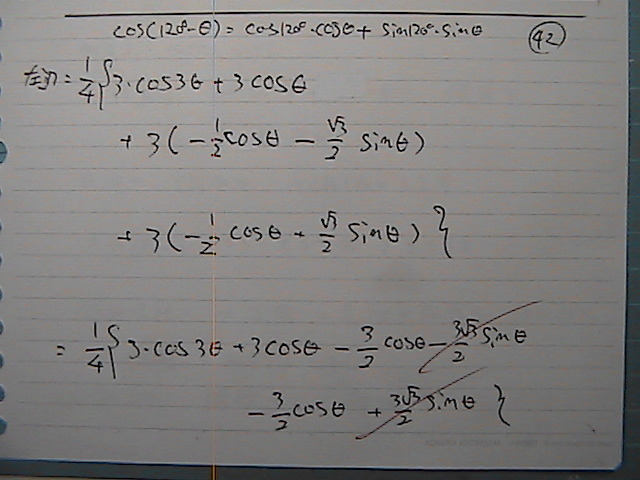 cos(120°-θ) = cos120°·cosθ + sin120°·sinθ
42
左辺 = 1/4 { 3·cos3θ + 3cosθ
+ 3(-1/2 cosθ - √3/2 sinθ)
+ 3(-1/2 cosθ + √3/2 sinθ) }
= 1/4 { 3·cos3θ + 3cosθ - 3/2 cosθ - 3√3/2 sinθ
- 3/2 cosθ + 3√3/2 sinθ }